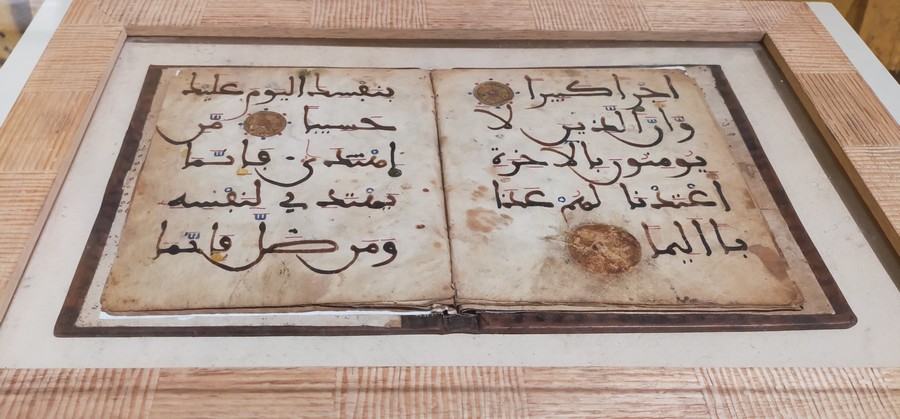 اجرا كبيرا
وَأَنَّ الَّذين لا
يومنون بالاخرة
اعْتَدْنا لَهُمْ عَذَا
با اليما
بنفسك اليوم عليك
حسيبا مَّن
اِهْتدى فإنَّما
يهْتدي لنفْسه
ومن ضلَّ فإنَّما